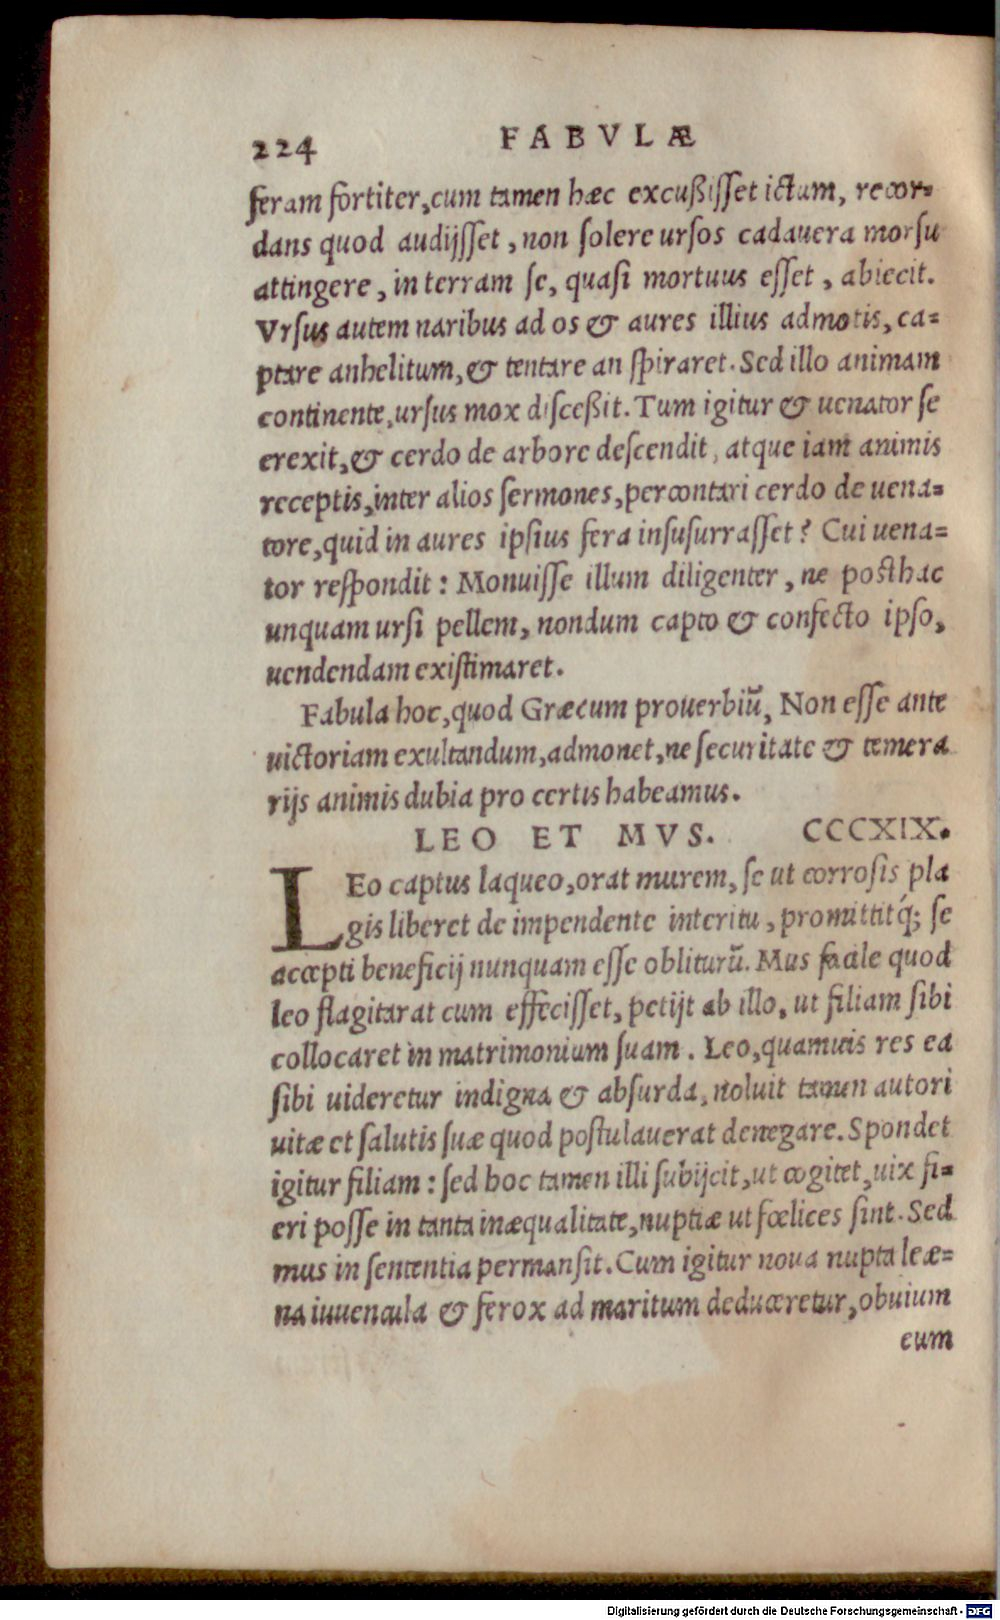 224 FABVLÆ
feram fortiter, cum tamen hæc excußisset ictum, recor-
dans quod audijsset, non solere ursos cadauera morsu
attingere, in terram se, quasi mortuus esset, abiecit.
Vrsus autem naribus ad os & aures illius admotis, ca-
ptare anhelitum, & tentare an spiraret. Sed illo animam
continente, ursus mox discessit. Tum igitur & uenator se
erexit, & cerdo de arbore descendit, atque iam animis
receptis, inter alios sermones, percontari cerdo de uena-
tore, quid in aures ipsius fera insusurrasset? Cui uena-
tor respondit: Monuisse illum diligenter, ne posthac
unquam ursi pellem, nondum capto & confecto ipso,
uendendam existimaret.
Fabula hoc, quod Græcum prouerbiũ, Non esse ante
uictoriam exultandum, admonet, ne securitate & temera
rijs animis dubia pro certis habeamus.
LEO ET MVS. CCCXIX.
LEo captus laqueo, orat murem, se ut corrosis pla
gis liberet de impendente interitu, promittitq́; se
accepti beneficij nunquam esse obliturũ. Mus facile quod
leo flagitarat cum effecisset, petijt ab illo, ut filiam sibi
collocaret in matrimonium suam. Leo, quamuis res ea
sibi uideretur indigna & absurda, noluit tamen autori
uitæ et salutis suæ quod postulauerat denegare. Spondet
igitur filiam: sed hoc tamen illi subijcit, ut cogitet, uix fi-
eri posse in tanta inæqualitate, nuptiæ ut fœlices sint. Sed
mus in sententia permansit. Cum igitur noua nupta leæ-
na iuuencula & ferox ad maritum deduceretur, obuium
eum
Digitalisierung gefördert durch die Deutsche Forschungsgemeinschaft - DFG